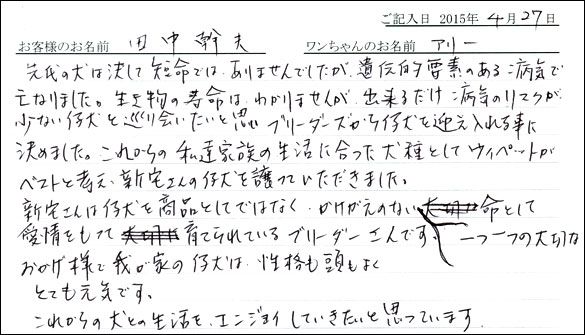 ご記入日 2015年 4月 27日
お客様のお名前 田中 幹夫 ワンちゃんのお名前 アリー
先代の犬は決して短命ではありませんでしたが、遺伝的要素のある病気で
亡なりました。生き物の寿命はわかりませんが、出来るだけ病気のリスクが
少ない仔犬と巡り会いたいと思いブリーダーズから仔犬を迎え入れる事に
決めました。これからの私達家族の生活に合った犬種としてウィペットが
ベストと考え、新宅さんの仔犬を譲っていただきました。
新宅さんは仔犬を商品としてではなく、かけがえのない命として
愛情をもって育てられているブリーダーさんです。一つ一つの大切な
おかげ様で我が家の仔犬は、性格も頭もよく
とても元気です。
これからの犬との生活を、エンジョイしていきたいと思っています。